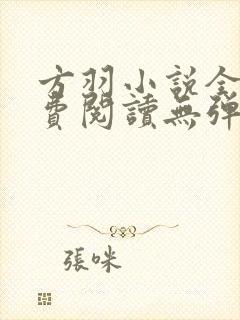 方羽小說全
費閱讀無彈
張咪